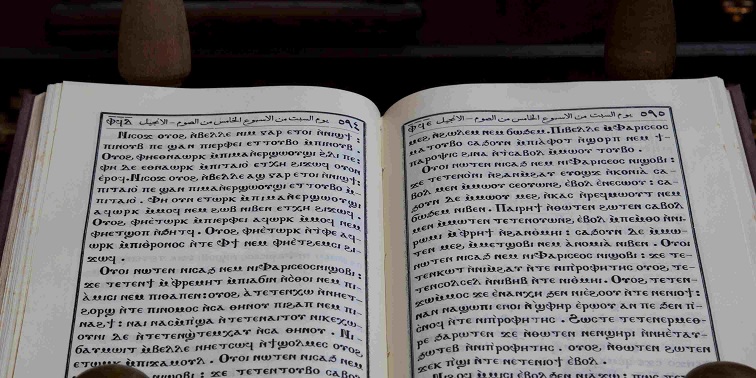 ⲫϥⲇ يوم السبت من الاسبوع الخامس من الصوم – الانجيل ٥٩٤
Ⲛⲓⲥⲟϫ ⲟⲩⲟϩ ⲙ̀ⲃⲉⲗⲗⲉ ⲛⲓⲙ ⲅⲁⲣ ⲉⲧⲟⲓ ⲛ̀ⲛⲓϣϯ :
ⲡⲓⲛⲟⲩⲃ ⲡⲉ ϣⲁⲛ ⲡⲓⲉⲣⲫⲉⲓ ⲉⲧⲧⲟⲩⲃⲟ ⲙ̀ⲡⲓⲛⲟⲩⲃ .
Ⲟⲩⲟϩ ⲫⲏⲉⲑⲛⲁⲱⲣⲕ ⲙ̀ⲡⲓⲙⲁⲛⲉⲣϣⲱⲟⲩϣⲓ ϩ̀ⲗⲓ ⲡⲉ :
ⲫⲏ ⲇⲉ ⲉⲑⲛⲁⲱⲣⲕ ⲙ̀ⲡⲓⲧⲁⲓⲟ ⲉⲧⲭⲏ ϩⲓϫⲱϥ ⲟⲩⲟⲛ
ⲉⲣⲟϥ . Ⲛⲓⲥⲟϫ ⲟⲩⲟϩ ⲙ̀ⲃⲉⲗⲗⲉ ⲁϣ ⲅⲁⲣ ⲉⲧⲟⲓ ⲛ̀ⲛⲓϣϯ :
ⲡⲓⲧⲁⲓⲟ ⲡⲉ ϣⲁⲛ ⲡⲓⲙⲁⲛⲉⲣϣⲱⲟⲩϣⲓ ⲉⲧⲧⲟⲩⲃⲟ ⲙ̀-
ⲡⲓⲧⲁⲓⲟ . Ⲫⲏ ⲟⲩⲛ ⲉⲧⲱⲣⲕ ⲙ̀ⲡⲓⲙⲁⲛⲉⲣϣⲱⲟⲩϣⲓ
ⲁϥⲱⲣⲕ ⲙ̀ⲙⲟϥ ⲛⲉⲙ ϩⲱⲃ ⲛⲓⲃⲉⲛ ⲉⲧⲭⲏ ϩⲓϫⲱϥ .
Ⲟⲩⲟϩ ⲫⲏⲉⲧⲱⲣⲕ ⲙ̀ⲡⲓⲉⲣⲫⲉⲓ ⲁϥⲱⲣⲕ ⲙ̀ⲙⲟϥ ⲛⲉⲙ
ⲫⲏⲉⲧϣⲟⲡ ⲛ̀ϧⲏⲧϥ . Ⲟⲩⲟϩ ⲫⲏⲉⲧⲱⲣⲕ ⲛ̀ⲧⲫⲉ ⲁϥ-
ⲱⲣⲕ ⲙ̀ⲡⲓⲑⲣⲟⲛⲟⲥ ⲛ̀ⲧⲉ Ⲫϯ ⲛⲉⲙ ⲫⲏⲉⲧϩⲉⲙⲥⲓ ϩⲓ-
ϫⲱϥ .
Ⲟⲩⲟⲓ ⲛⲱⲧⲉⲛ ⲛⲓⲥⲁϧ ⲛⲉⲙ ⲛⲓⲪⲁⲣⲓⲥⲉⲟⲥ ⲛⲓϣⲟⲃⲓ :
ϫⲉ ⲧⲉⲧⲉⲛϯ ⲙ̀ⲫⲣⲉⲙⲏⲧ ⲙ̀ⲡⲓⲁⲃⲓⲛ ⲛ̀ⲥⲑⲟⲓ ⲛⲉⲙ ⲡⲓ-
ⲁⲙⲓⲥⲓ ⲛⲉⲙ ⲡⲓⲑⲁⲡⲉⲛ : ⲟⲩⲟϩ ⲁ̀ⲧⲉⲧⲉⲛⲭⲱ ⲛ̀ⲛⲏⲉⲧ-
ϩⲟⲣϣ ⲛ̀ⲧⲉ ⲡⲓⲛⲟⲙⲟⲥ ⲛ̀ⲥⲁ ⲑⲏⲛⲟⲩ ⲡⲓϩⲁⲡ ⲛⲉⲙ ⲡⲓ-
ⲛⲁϩϯ : ⲛⲁⲓ ⲛⲁⲥⲙ̀ⲡϣⲁ ⲛ̀ⲧⲉⲧⲉⲛⲁⲓⲧⲟⲩ ⲛⲓⲕⲉⲭⲱ-
ⲟⲩⲛⲓ ⲇⲉ ⲛ̀ⲧⲉⲧⲉⲛϣ̀ⲧⲉⲙⲭⲁⲩ ⲛ̀ⲥⲁ ⲑⲏⲛⲟⲩ . Ⲛⲓ-
ϭⲁⲩⲙⲱⲓⲧ ⲙ̀ⲃⲉⲗⲗⲉ
ⲉⲧⲱⲙⲕ ⲙ̀ⲡⲓϫⲁⲙⲟⲩⲗ . Ⲟⲩⲟⲓ ⲛⲱⲧⲉⲛ ⲛⲓⲥⲁϧ ⲛⲉⲙ
ⲛⲓϣⲟⲃⲓ : ϫⲉ ⲧⲉⲧⲉⲛⲧⲟⲩⲃⲟ ⲥⲁⲃⲟⲗ
ⲫϥⲉ يوم السبت من الاسبوع الخامس من الصوم – الانجيل ٥٩٥
ⲙⲉϩ ⲛ̀ϩⲱⲗⲉⲙ ⲛⲉⲙ ϭⲱϧⲉⲙ . Ⲡⲓⲃⲉⲗⲗⲉ ⲙ̀Ⲫⲁⲣⲓⲥⲉⲟⲥ
ⲙⲁⲧⲟⲩⲃⲟ ⲥⲁϧⲟⲩⲛ ⲙ̀ⲡⲓⲁⲫⲟⲧ ⲛ̀ϣⲟⲣⲡ ⲛⲉⲙ ϯ-
ⲡⲁⲣⲟⲯⲓⲥ ϩⲓⲛⲁ ⲛ̀ⲧⲉⲥⲁⲃⲟⲗ ⲙ̀ⲙⲱⲟⲩ ⲧⲟⲩⲃⲟ .
Ⲟⲩⲟⲓ ⲛⲱⲧⲉⲛ ⲛⲓⲥⲁϧ ⲛⲉⲙ ⲛⲓⲪⲁⲣⲓⲥⲉⲟⲥ ⲛⲓϣⲟⲃⲓ :
ϫⲉ ⲧⲉⲧⲉⲛⲟⲛⲓ ⲛ̀ϩⲁⲛⲙ̀ϩⲁⲩ ⲉⲩⲟϣϫ ⲛ̀ⲕⲟⲛⲓⲁ ⲥⲁ-
ⲃⲟⲗ ⲙⲉⲛ ⲙ̀ⲙⲱⲟⲩ ⲥⲉⲟⲩⲱⲛϩ ⲉ̀ⲃⲟⲗ ⲉⲛⲉⲥⲱⲟⲩ : ⲥⲁ-
ϧⲟⲩⲛ ⲇⲉ ⲙ̀ⲙⲱⲟⲩ ⲙⲉϩ ⲛ̀ⲕⲁⲥ ⲛ̀ⲣⲉϥⲙⲱⲟⲩⲧ ⲛⲉⲙ
ϭⲱϧⲉⲙ ⲛⲓⲃⲉⲛ . Ⲡⲁⲓⲣⲏϯ ⲛ̀ⲑⲱⲧⲉⲛ ϩⲱⲧⲉⲛ ⲥⲁⲃⲟⲗ
ⲙⲉⲛ ⲙ̀ⲙⲱⲧⲉⲛ ⲧⲉⲧⲉⲛⲟⲩⲱⲛϩ ⲉ̀ⲃⲟⲗ ⲙ̀ⲡⲉⲙ̀ⲑⲟ ⲛ̀ⲛⲓ-
ⲣⲱⲙⲓ ⲙ̀ⲫⲣⲏϯ ⲛ̀ϩⲁⲛⲑⲙⲏⲓ : ⲥⲁϧⲟⲩⲛ ⲇⲉ ⲙ̀ⲙⲱ-
ⲧⲉⲛ ⲙⲉϩ ⲙ̀ⲙⲉⲧϣⲟⲃⲓ ⲛⲉⲙ ⲁⲛⲟⲙⲓⲁ ⲛⲓⲃⲉⲛ . Ⲟⲩⲟⲓ
ⲛⲱⲧⲉⲛ ⲛⲓⲥⲁϧ ⲛⲉⲙ ⲛⲓⲪⲁⲣⲓⲥⲉⲟⲥ ⲛⲓϣⲟⲃⲓ : ϫⲉ ⲧⲉ-
ⲧⲉⲛⲕⲱⲧ ⲛ̀ⲛⲓⲙ̀ϩⲁⲩ ⲛ̀ⲧⲉ ⲛⲓⲡ̀ⲣⲟⲫⲏⲧⲏⲥ ⲟⲩⲟϩ ⲧⲉ-
ⲧⲉⲛⲥⲟⲗⲥⲉⲗ ⲛ̀ⲛⲓⲃⲏⲃ ⲛ̀ⲧⲉ ⲛⲓⲑⲙⲏⲓ . Ⲟⲩⲟϩ ⲧⲉⲧⲉⲛ-
ϫⲱⲙ̀ⲙⲟⲥ ϫⲉ ⲉⲛⲁⲛⲭⲏ ϧⲉⲛ ⲛⲓⲉϩⲟⲟⲩ ⲛ̀ⲧⲉ ⲛⲉⲛⲓⲟϯ :
ⲛⲁⲛ ⲛⲁϣⲱⲡⲓ ⲉⲛⲟⲓ ⲛ̀ϣⲫⲏⲣ ⲉⲣⲱⲟⲩ ⲁⲛ ⲡⲉ ϧⲉⲛ ⲡⲓ-
ⲥ̀ⲛⲟϥ ⲛ̀ⲧⲉ ⲛⲓⲡ̀ⲣⲟⲫⲏⲧⲏⲥ . Ϩⲱⲥⲧⲉ ⲧⲉⲧⲉⲛⲉⲣⲙⲉⲑ-
ⲣⲉ ϧⲁⲣⲱⲧⲉⲛ ϫⲉ ⲛ̀ⲑⲱⲧⲉⲛ ⲛⲉⲛϣⲏⲣⲓ ⲛ̀ⲛⲏⲉⲧⲁⲩ-
ϧⲱⲧⲉⲃ ⲛ̀ⲛⲓⲡ̀ⲣⲟⲫⲏⲧⲏⲥ . ⲟⲩⲟϩ ⲛ̀ⲑⲱⲧⲉⲛ ϩⲱⲧⲉⲛ
ϫⲉⲕ ⲡ̀ϣⲓ ⲛ̀ⲧⲉ ⲛⲉⲧⲉⲛⲓⲟϯ ⲉ̀ⲃⲟⲗ .